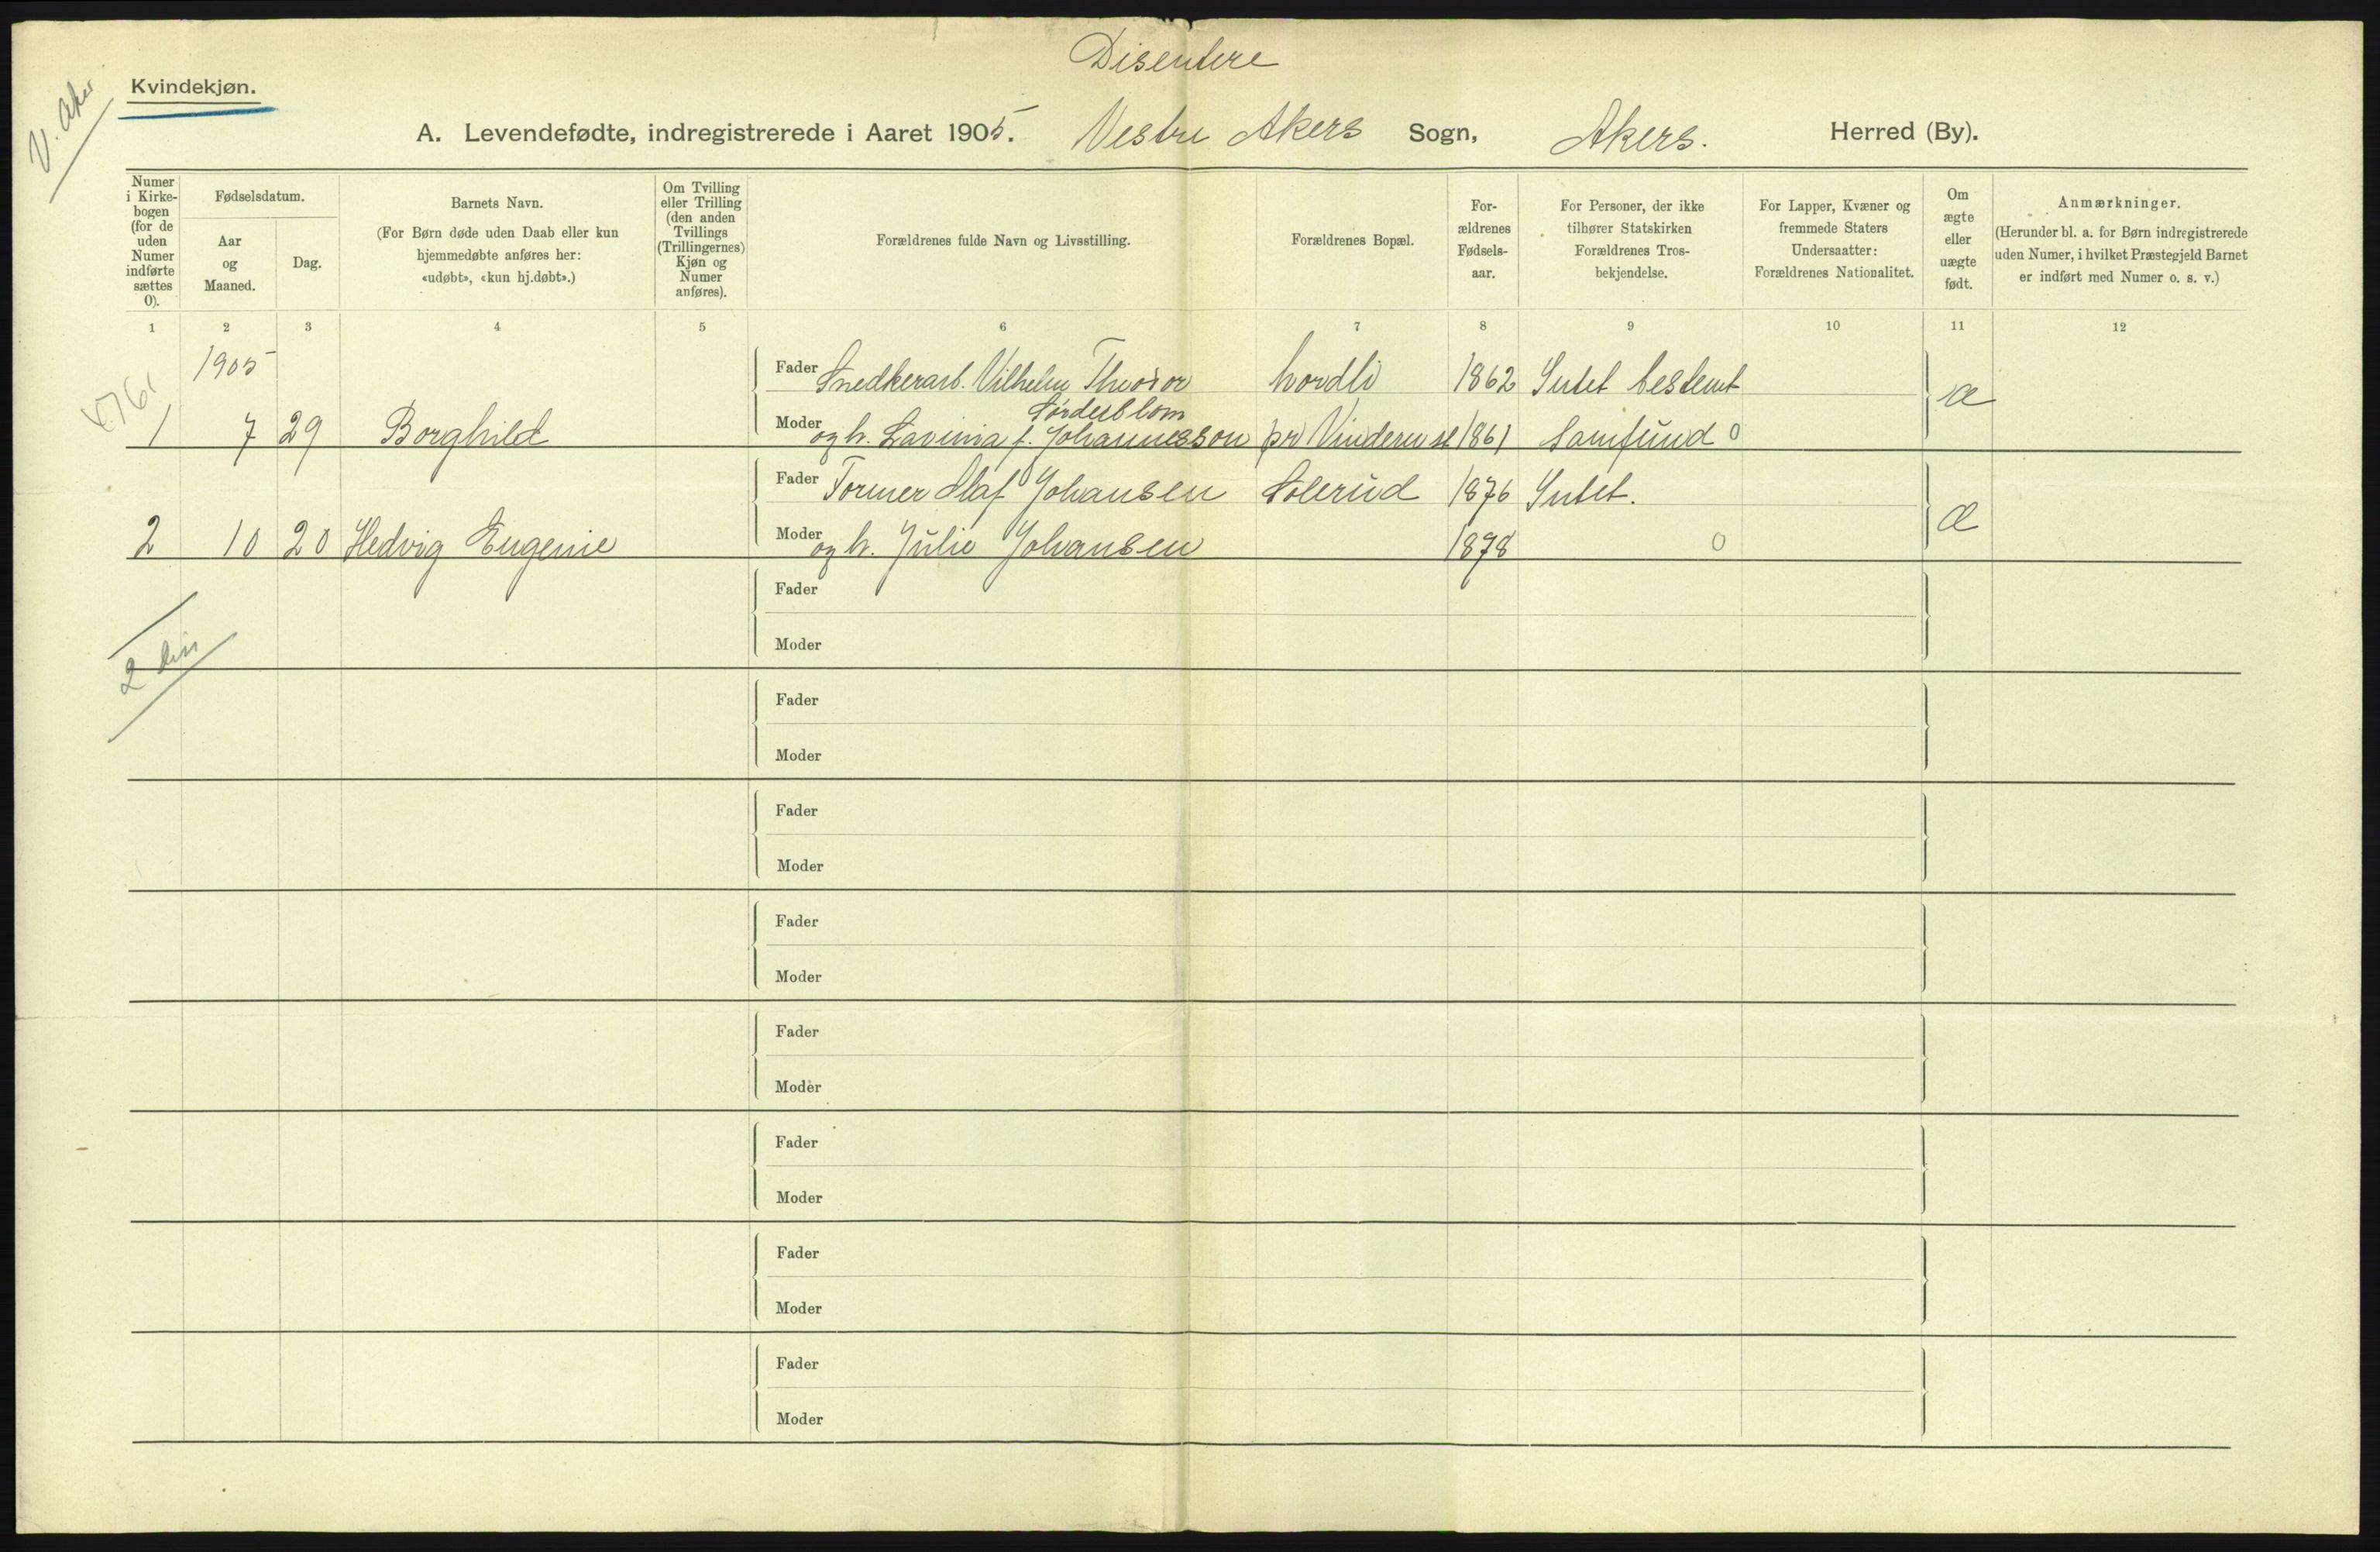 Disentere
V. Aker
Kvindekjøn.
A. Levendefødte, indregistrerede i Aaret 1905. Vestre Akers Sogn, Akers. Herred (By).
Numer i Kirkebogen (for de uden Numer indførte sættes 0).
Fødselsdatum.
Aar og Maaned.
Dag.
Barnets Navn.
(For Børn døde uden Daab eller kun hjemmedøbte anføres her: «udøbt», «kun hj.døbt».)
Om Tvilling eller Trilling (den anden Tvillings (Trillingernes) Kjøn og Numer anføres).
Forældrenes fulde Navn og Livsstilling.
Forældrenes Bopæl.
Forældrenes Fødselsaar.
For Personer, der ikke tilhører Statskirken Forældrenes Trosbekjendelse.
For Lapper, Kvæner og fremmede Staters Undersaatter: Forældrenes Nationalitet.
Om ægte eller uægte født.
Anmærkninger.
(Herunder bl. a. for Børn indregistrerede uden Numer, i hvilket Præstegjeld Barnet er indført med Numer o. s. v.)
1 2 3 4 5 6 7 8 9 10 11 12
1905
Fader Snedkerarb. Vilhelm Theodor Hordli 1862 Intet bestemt æ
Söderblom
1 7 29 Borghild Moder og h. Lavinia f. Johannesson pr Vinderen st 1861 Samfund 0
Fader Former Olaf Johansen Solerud 1876 Intet. æ
2 10 20 Hedvig Eugenie Moder og h. Julie Johansen 1878 0
Fader
Moder
2 diss
Fader
Moder
Fader
Moder
Fader
Moder
Fader
Moder
Fader
Moder
Fader
Moder
Fader
Moder